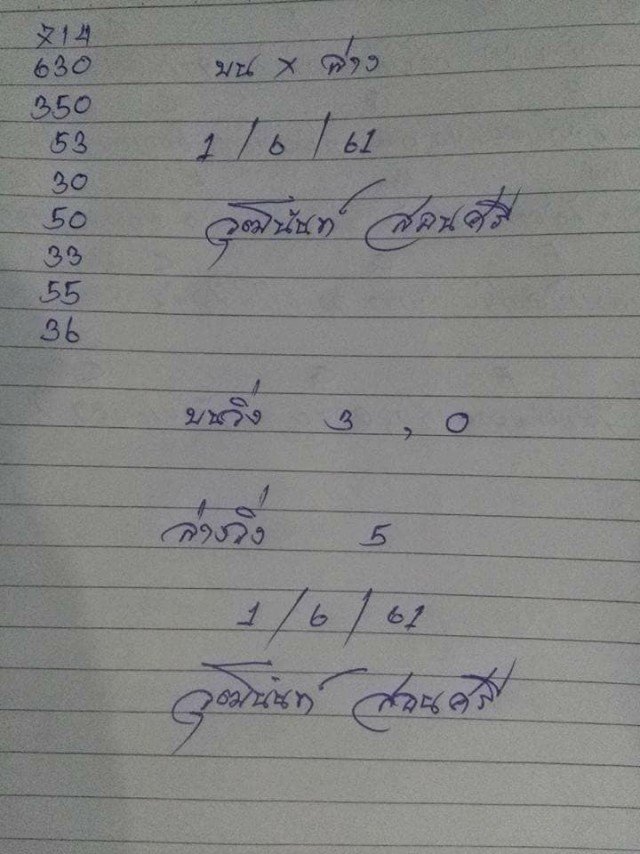 714
630 บน x ล่าง
350
53 1 / 6 / 61
30
50 วุฒินันท์ สอนศรี
33
55
36
บนวิ่ง 3 , 0
ล่างวิ่ง 5
1 / 6 / 61
วุฒินันท์ สอนศรี